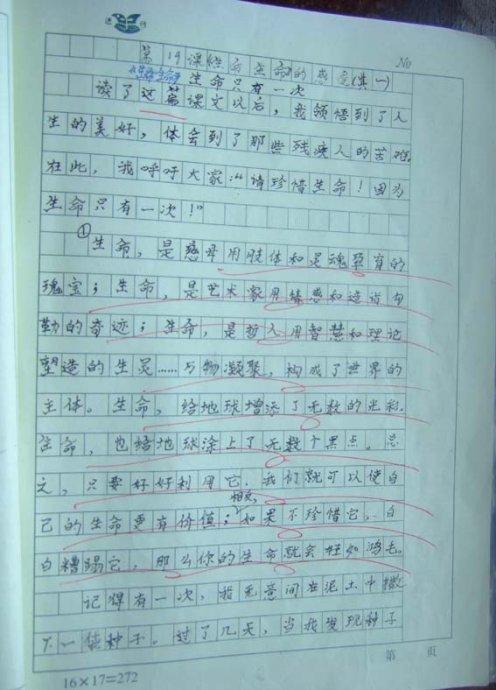 No
第19课悟后生命的感受(生一)
生命只有一次
读了这篇课文以后，我领悟到了人
生的美好，体会到了那些残疾人的苦难。
在此，我呼吁大家：“请珍惜生命！因为
生命只有一次！”
①生命，是慈母用肢体和灵魂孕育的
瑰宝；生命，是艺术家用情感和造诣勾
勒的奇迹；生命，是哲人用智慧和理论
塑造的生灵……与物凝聚，构成了世界的
主体。生命，给地球增添了无数的光彩。
生命，也给地球涂上了无数个黑点。总
之，只要好好利用它，我们就可以使自
己的生命更有价值；相反，如果不珍惜它，白
白糟蹋它，那么你的生命就会轻如鸿毛。
记得有一次，我无意间在泥土中撒
下一袋种子。过了几天，当我发现种子
第 页
16×17=272